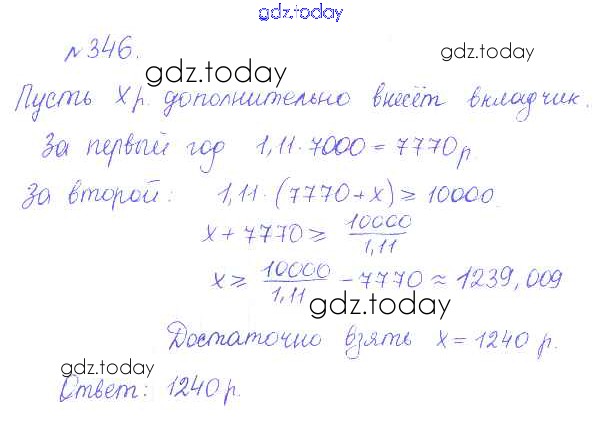 gdz.today
№346.
gdz.today
gdz.today
Пусть х р. дополнительно внесёт вкладчик.
За первый год 1,11·7000=7770р.
За второй: 1,11·(7770+х)≥10000
х+7770≥ 10000/1,11
х≥ 10000/1,11 -7770≈1239,009
gdz.today
Достаточно взять х=1240 р.
gdz.today
Ответ: 1240р.